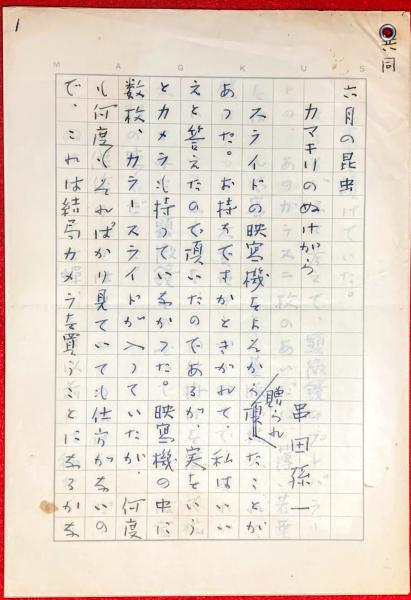 1
共同
MAGKUS
六月の昆虫
カマキリのぬけがら
串田孫一
スライドの映写機をよそから頂いたことが
贈られ
あつた。お持ちですかときかれて、私はいい
えと答えたので頂いたのであるが、実をいう
とカメラも持つていなかつた。映写機の中に
数枚、カラースライドが入つていたが、何度
も何度もそればかり見ていても仕方がないの
で、これは結局カメラを買うことになるかな